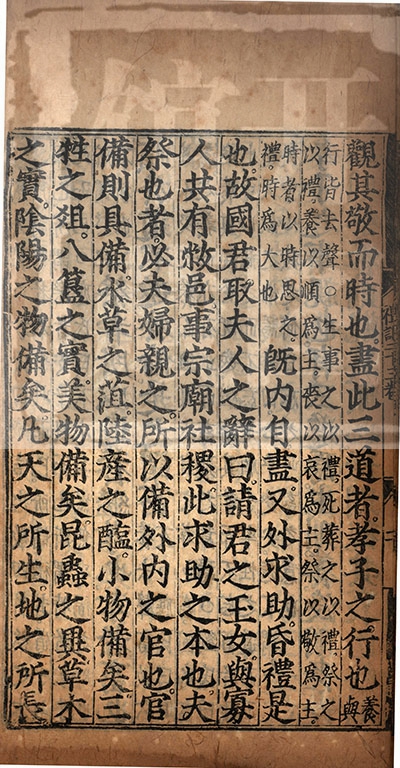 觀其敬而時也。盡此三道者。孝子之行也養與
行皆去聲○生事之以禮死葬之以禮祭之
以禮養以順爲主。喪以哀爲主。祭以敬爲主。
時者以時思之。
禮。時爲大也
旣内自盡。又外求助。昏禮是
也。故國君取夫人之辭曰。請君之玉女與寡
人共有敝邑事宗廟社稷。此求助之本也。夫
祭也者。必夫婦親之。所以備外内之官也。官
備則具備。水草之菹。陸產之醢。小物備矣。三
牲之俎。八簋之實。美物備矣。昆蟲之異。草木
之實。陰陽之物備矣。凡天之所生。地之所長